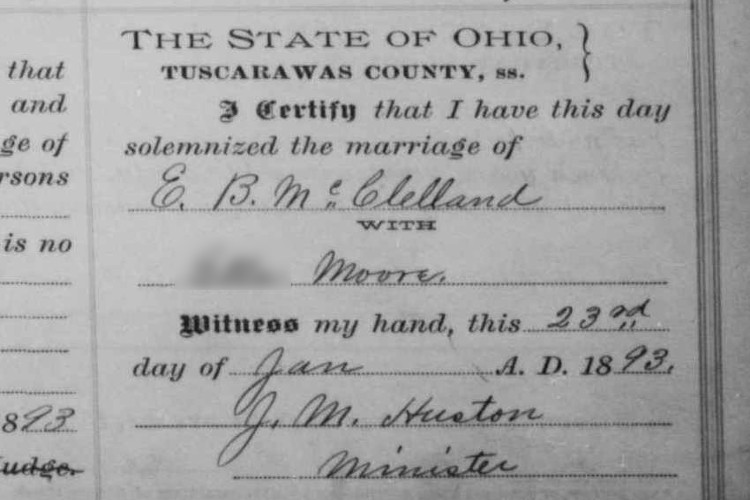 THE STATE OF OHIO,
TUSCARAWAS COUNTY, ss.
I Certify that I have this day
solemnized the marriage of
E. B. McClelland
WITH
Moore.
Witness my hand, this 23rd
day of Jan A. D. 1893.
J. M. Huston
Minister
that
and
ge of
rsons
is no
893
udge.